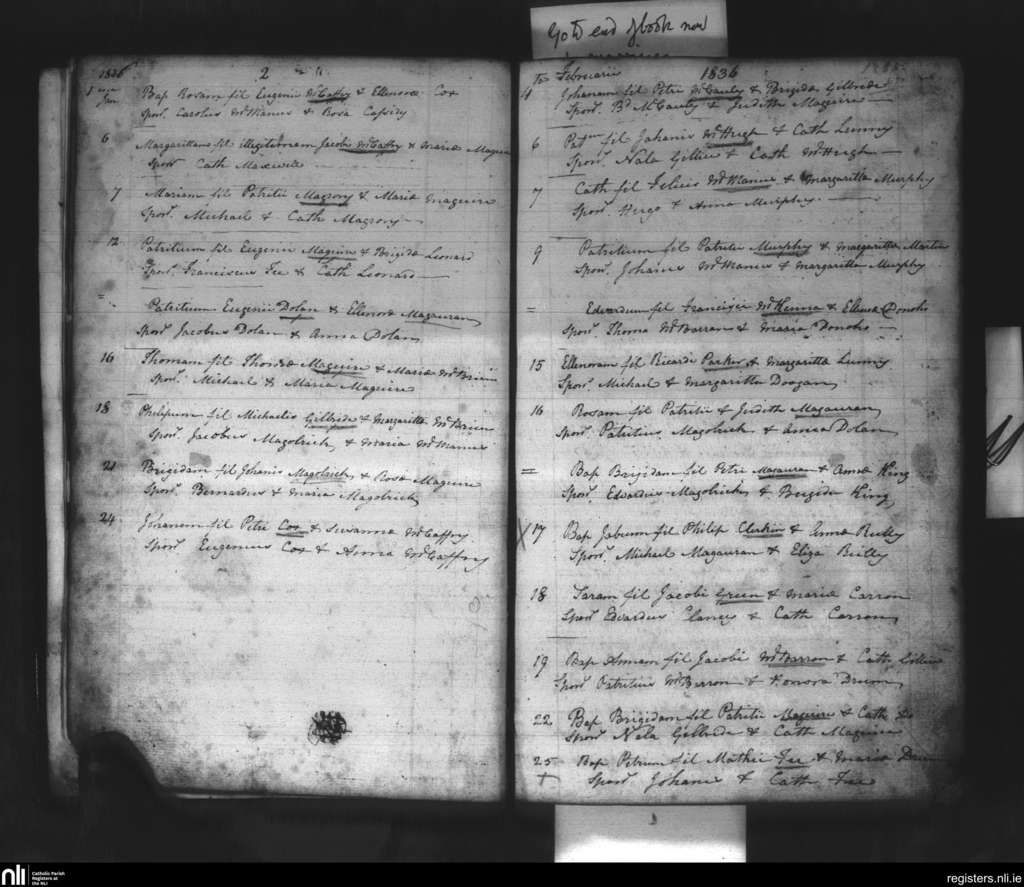 Go to end of book now
1836
2
1
Jan
Bap Rosam fil Eugenii McCaffry & Ellenoræ Cox
Spon. Carolus McManus & Rosa Cassidy
6
Margarittam fil illigitimam Jacobi McCaffry & Mariæ Maguire
Spon Cath Maxwell
7
Mariam fil Patritii Magrory & Mariæ Maguire
Spon. Michael & Cath Magrory
12
Patritium fil Eugenii Maguire & Brigidæ Leonard
Spon. Franciscus Fee & Cath Leonard
=
Patritium Eugenii Dolan & Ellenoræ Magauran
Spon Jacobus Dolan & Anna Dolan
16
Thomam fil Thomæ Maguire & Mariæ McBrien
Spon. Michael & Maria Maguire
18
Philipum fil Michaelis Gilbride & Margaritta McBrien
Spon. Jacobus Magolrick & Maria McManus
21
Brigidam fil Johanis Magolrick & Rosæ Maguire
Spon. Bernardus & Maria Magolrick
24
Johanem fil Petri Cox & Susannæ McCaffry
Spon. Eugenius Cox & Anna McCaffry
Februarii
1836
4
Johanam fil Petri McCauly & Brigidæ Gilbride
Spon. Bd McCauly & Judith Maguire
6
Patm fil Johanis McHugh & Cath Lunny
Spon. Nala Gillice & Cath McHugh
7
Cath fil Felicis McManus & Margaritta Murphy
Spon. Hugo & Anna Murphy
9
Patritium fil Patritii Murphy & Margaritta Martin
Spon. Johanes McManus & Margaritta Murphy
=
Edwardum fil Francisci McKenna & Ellenoæ Donoho
Spon. Thoma McBarran & Maria Donoho
15
Ellenoram fil Ricardi Parker & Margaritta Lunny
Spon. Michael & Margaritta Doogan
16
Rosam fil Patritii & Judith Magauran
Spon. Patritius Magolrick & Anna Dolan
=
Bap Brigidam fil Petri Magauran & Annæ King
Spon. Edwardus Magolrick & Brigida King
X 17
Bap Jabum fil Philip Clerkin & Annæ Reilly
Spon. Michael Magauran & Eliza Reilly
18
Saram fil Jacobi Green & Mariæ Carron
Spon Edwardus Clancy & Cath Carron
19
Bap Annam fil Jacobi McBarron & Cath
Spon Patritius McBarron & Honora Drum
22
Bap Brigidam fil Patritii Maguire & Cath
Spon. Nala Gilbride & Cath Maguire
25
Bap Petrum fil Mathei Fee & Mariæ Drum
+
Spon. Johanes & Cath Fee
nli
Catholic Parish
Registers at
the NLI
registers.nli.ie